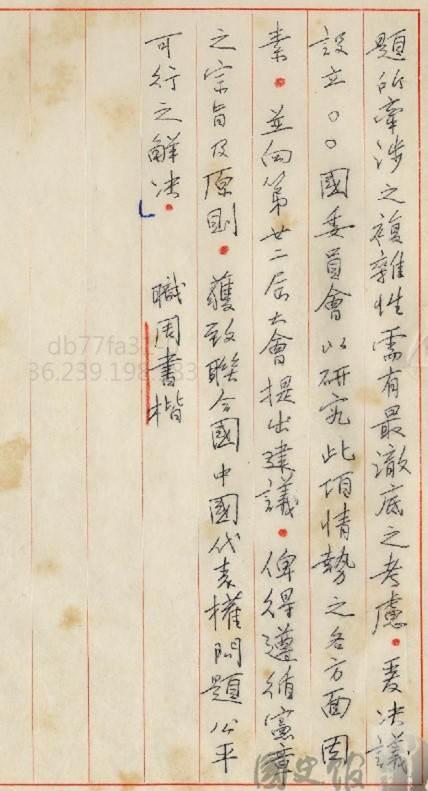 題所牽涉之複雜性需有最澈底之考慮。爰決議
設立○○國委員會以研究此項情勢之各方面因
素。並向第廿二屆大會提出建議。俾得遵循憲章
之宗旨及原則。獲致聯合國中國代表權問題公平
可行之解决。
職周書楷
國史館